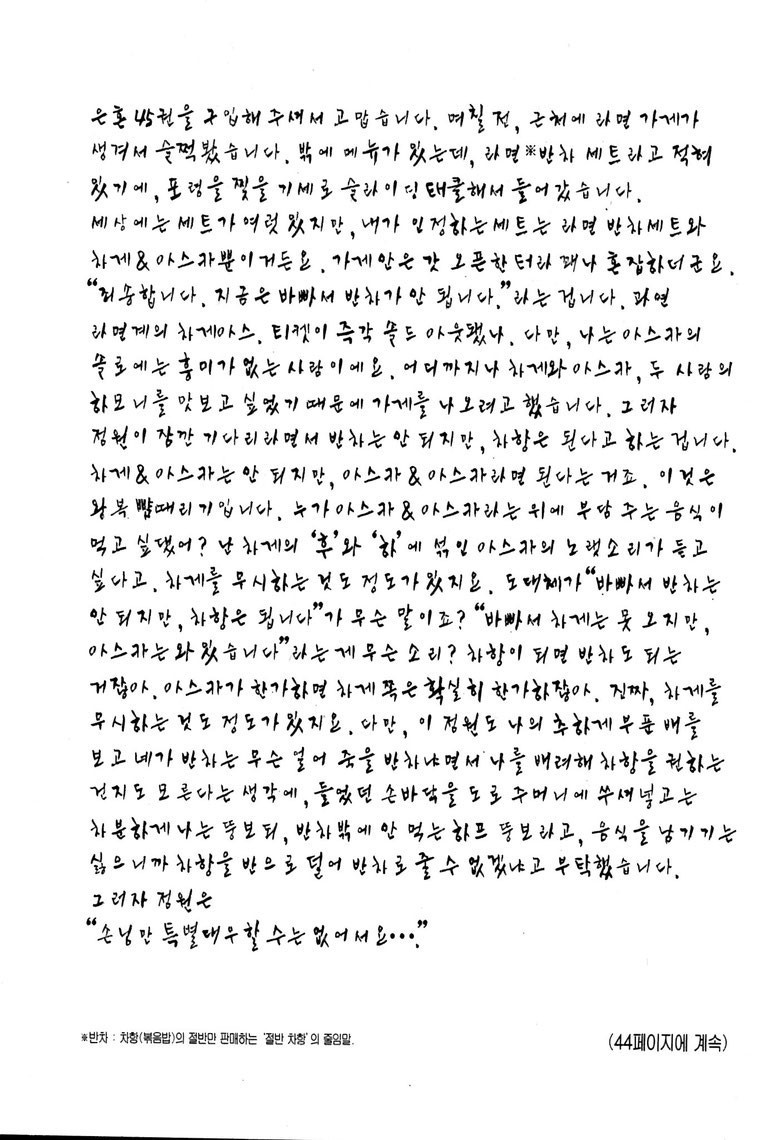 은혼 45권을 구입해 주셔서 고맙습니다. 며칠 전, 근처에 라면 가게가
생겨서 슬쩍 봤습니다. 밖에 메뉴가 있는데, 라면※반차 세트라고 적혀
있기에, 포렴을 찢을 기세로 슬라이딩 태클해서 들어갔습니다.
세상에는 세트가 여럿 있지만, 내가 인정하는 세트는 라면 반차세트와
차게&아스카뿐이거든요. 가게 안은 갓 오픈한 터라 꽤나 혼잡하더군요.
“죄송합니다. 지금은 바빠서 반차가 안 됩니다.”라는 겁니다. 과연
라면계의 차게아스. 티켓이 즉각 솔드 아웃됐나. 다만, 나는 아스카의
솔로에는 흥미가 없는 사람이에요. 어디까지나 차게와 아스카, 두 사람의
하모니를 맛보고 싶었기 때문에 가게를 나오려고 했습니다. 그러자
점원이 잠깐 기다리라면서 반차는 안 되지만, 차항은 된다고 하는 겁니다.
차게&아스카는 안 되지만, 아스카&아스카라면 된다는 거죠. 이것은
왕복 뺨때리기입니다. 누가 아스카&아스카라는 위에 부담 주는 음식이
먹고 싶댔어? 난 차게의 ‘후’와 ‘하’에 섞인 아스카의 노랫소리가 듣고
싶다고. 차게를 무시하는 것도 정도가 있지요. 도대체가 “바빠서 반차는
안 되지만, 차항은 됩니다”가 무슨 말이죠? “바빠서 차게는 못 오지만,
아스카는 와 있습니다”라는 게 무슨 소리? 차항이 되면 반차도 되는
거잖아. 아스카가 한가하면 차게 쪽은 확실히 한가하잖아. 진짜, 차게를
무시하는 것도 정도가 있지요. 다만, 이 점원도 나의 추하게 부푼 배를
보고 네가 반차는 무슨 얼어 죽을 반차냐면서 나를 배려해 차항을 권하는
건지도 모른다는 생각에, 들었던 손바닥을 도로 주머니에 쑤셔넣고는
차분하게 나는 뚱보되, 반차밖에 안 먹는 하프 뚱보라고, 음식을 남기기는
싫으니까 차항을 반으로 덜어 반차로 줄 수 없겠냐고 부탁했습니다.
그러자 점원은
“손님만 특별대우할 수는 없어서요….”
※반차 : 차항(볶음밥)의 절반만 판매하는 ‘절반 차항’의 줄임말.
(44페이지에 계속)